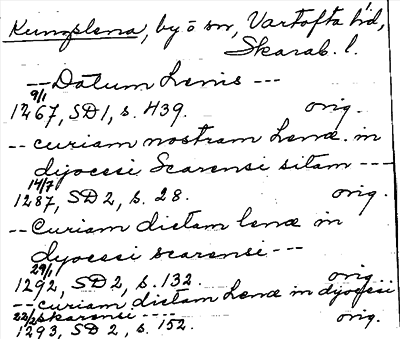 Kungslena, by ō sn, Vartofta hd,
Skarab. l.
-- Datum Lenis ---
9/1
1267, SD 1, s. 439. orig.
-- curiam nostram Lenæ in
dyocesi Scarensi sitam ---
14/7
1287, SD 2, s. 28. orig.
-- Curiam dictam lenæ in
dyocesi scarensi ---
29/1
1292, SD 2, s. 132. orig.
-- curiam dictam Lenæ in dyocesi
skarensi ----
22/2
1293, SD 2, s. 152. orig.